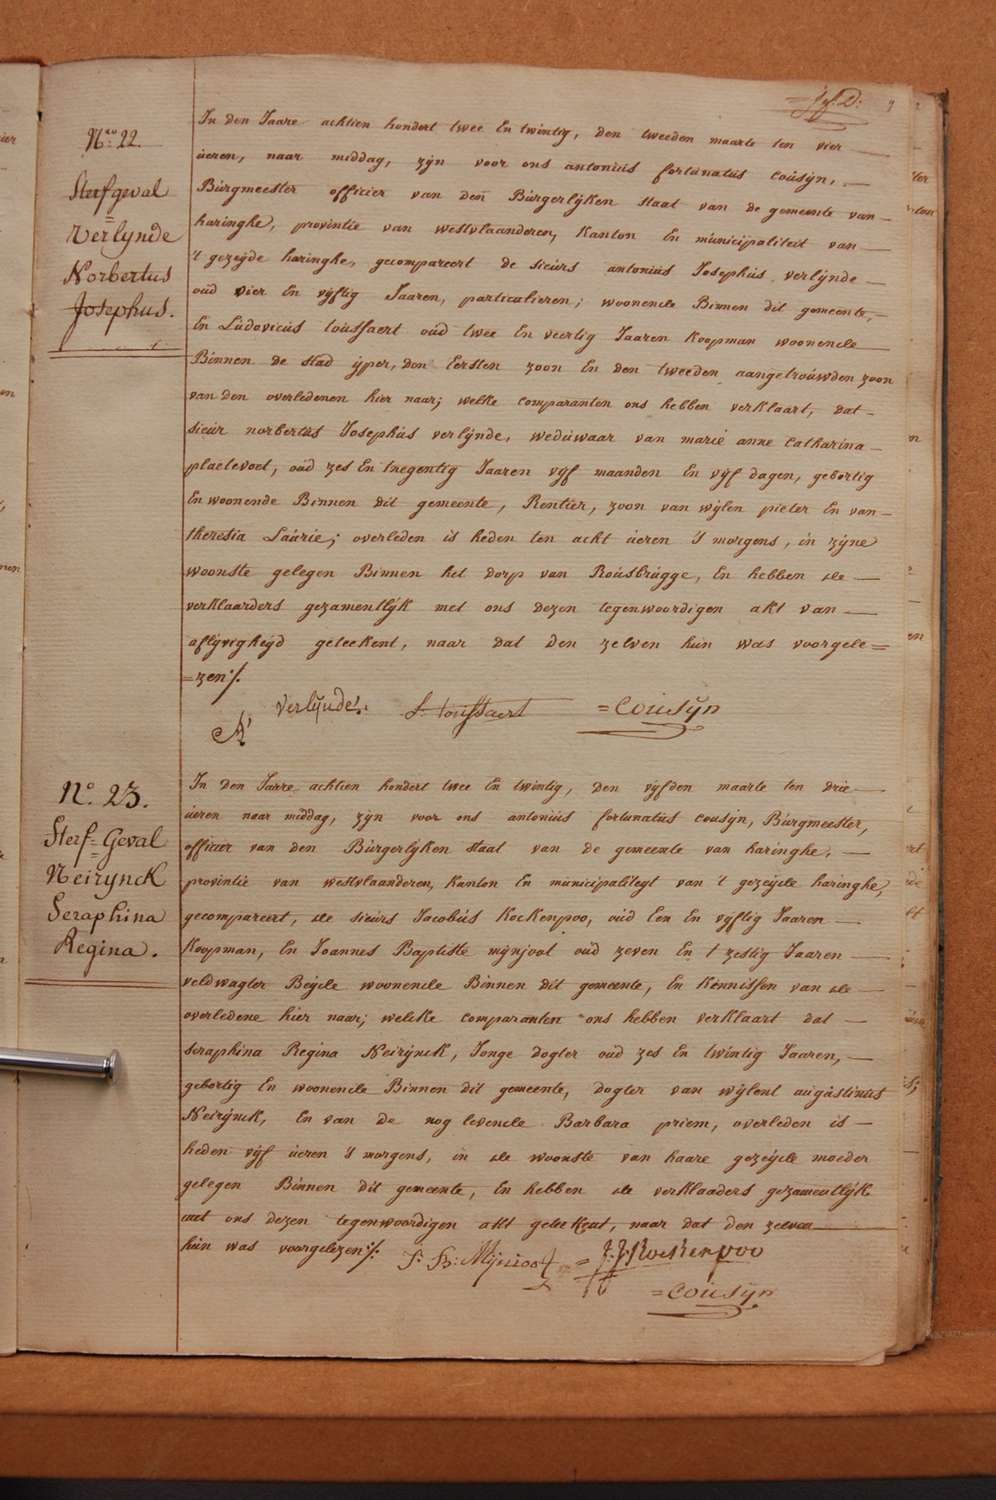 N.ro 22.
Sterfgeval
Verlynde
Norbertus
Josephus.
In den Jaare achtien hondert twee En twintig, den tweeden maarte ten vier
ueren, naar middag, zÿn voor ons antonius fortunatus Cousÿn,
Burgmeester officier van den Burgerlÿken staat van de gemeente van
haringhe, provintie van westvlaanderen, Kanton En municipaliteit van
't gezeÿde haringhe, gecompareert de sieurs antonius Josephus verlÿnde
oud vier En vÿftig Jaaren, particulieren; woonende Binnen dit gemeente,
En Ludovicus toussaert oud twee En veertig Jaaren Koopman woonende
Binnen de stad ijper, den Eersten zoon En den tweeden aangetrouwden zoon
van den overledenen hier naar; welke comparanten ons hebben verklaart, dat
sieur norbertus Josephus verlÿnde, weduwaar van marie anne Catharina
plaetevoet, oud zes En tnegentig Jaaren vÿf maanden En vÿf dagen, gebortig
En woonende Binnen dit gemeente, Rentier, zoon van wÿlen pieter En van
theresia Laurie; overleden is heden ten acht ueren 's morgens, in zÿne
woonste gelegen Binnen het dorp van Rousbrugge, En hebben de
verklaarders gezamentlÿk met ons dezen tegenwoordigen akt van
aflÿvigheÿd geteekent, naar dat den zelven hun was voorgele=
=zen ./.
A Verlÿnde. L. Toussaert =Cousÿn
N.o 23.
Sterf=Geval
Neirynck
Seraphina
Regina.
In den Jarre achtien hondert twee En twintig, den vÿfden maarte ten drie
ueren naar middag, zÿn voor ons antonius fortunatus cousÿn, Burgmeester,
officier van den Burgerlÿken staat van de gemeente van haringhe,
provintie van westvlaanderen, Kanton En municipaliteÿt van 't gezeÿde haringhe,
gecompareert, de sieurs Jacobus Kockenpoo, oud Een En vÿftig Jaaren
Koopman, En Joannes Baptiste mÿnjoot oud zeven En t zestig Jaaren
veldwagter Beÿde woonende Binnen dit gemeente, En Kennissen van de
overledene hier naar; welcke comparanten ons hebben verklaart dat
seraphina Regina Neirÿnck, Jonge dogter oud zes En twintig Jaaren,
gebortig En woonende Binnen dit gemeente, dogter van wÿlent augustinus
Neirÿnck, En van de nog levende Barbara priem, overleden is
heden vÿf ueren 's morgens, in de woonste van haare gezeÿde moeder
gelegen Binnen dit gemeente, En hebben de verklaaders gezamentlÿk
met ons dezen tegenwoordigen akt geteekent, naar dat den zelven
hun was voorgelezen ./. J: B: Mÿnjoot = J: J: Kockenpoo
=Cousÿn